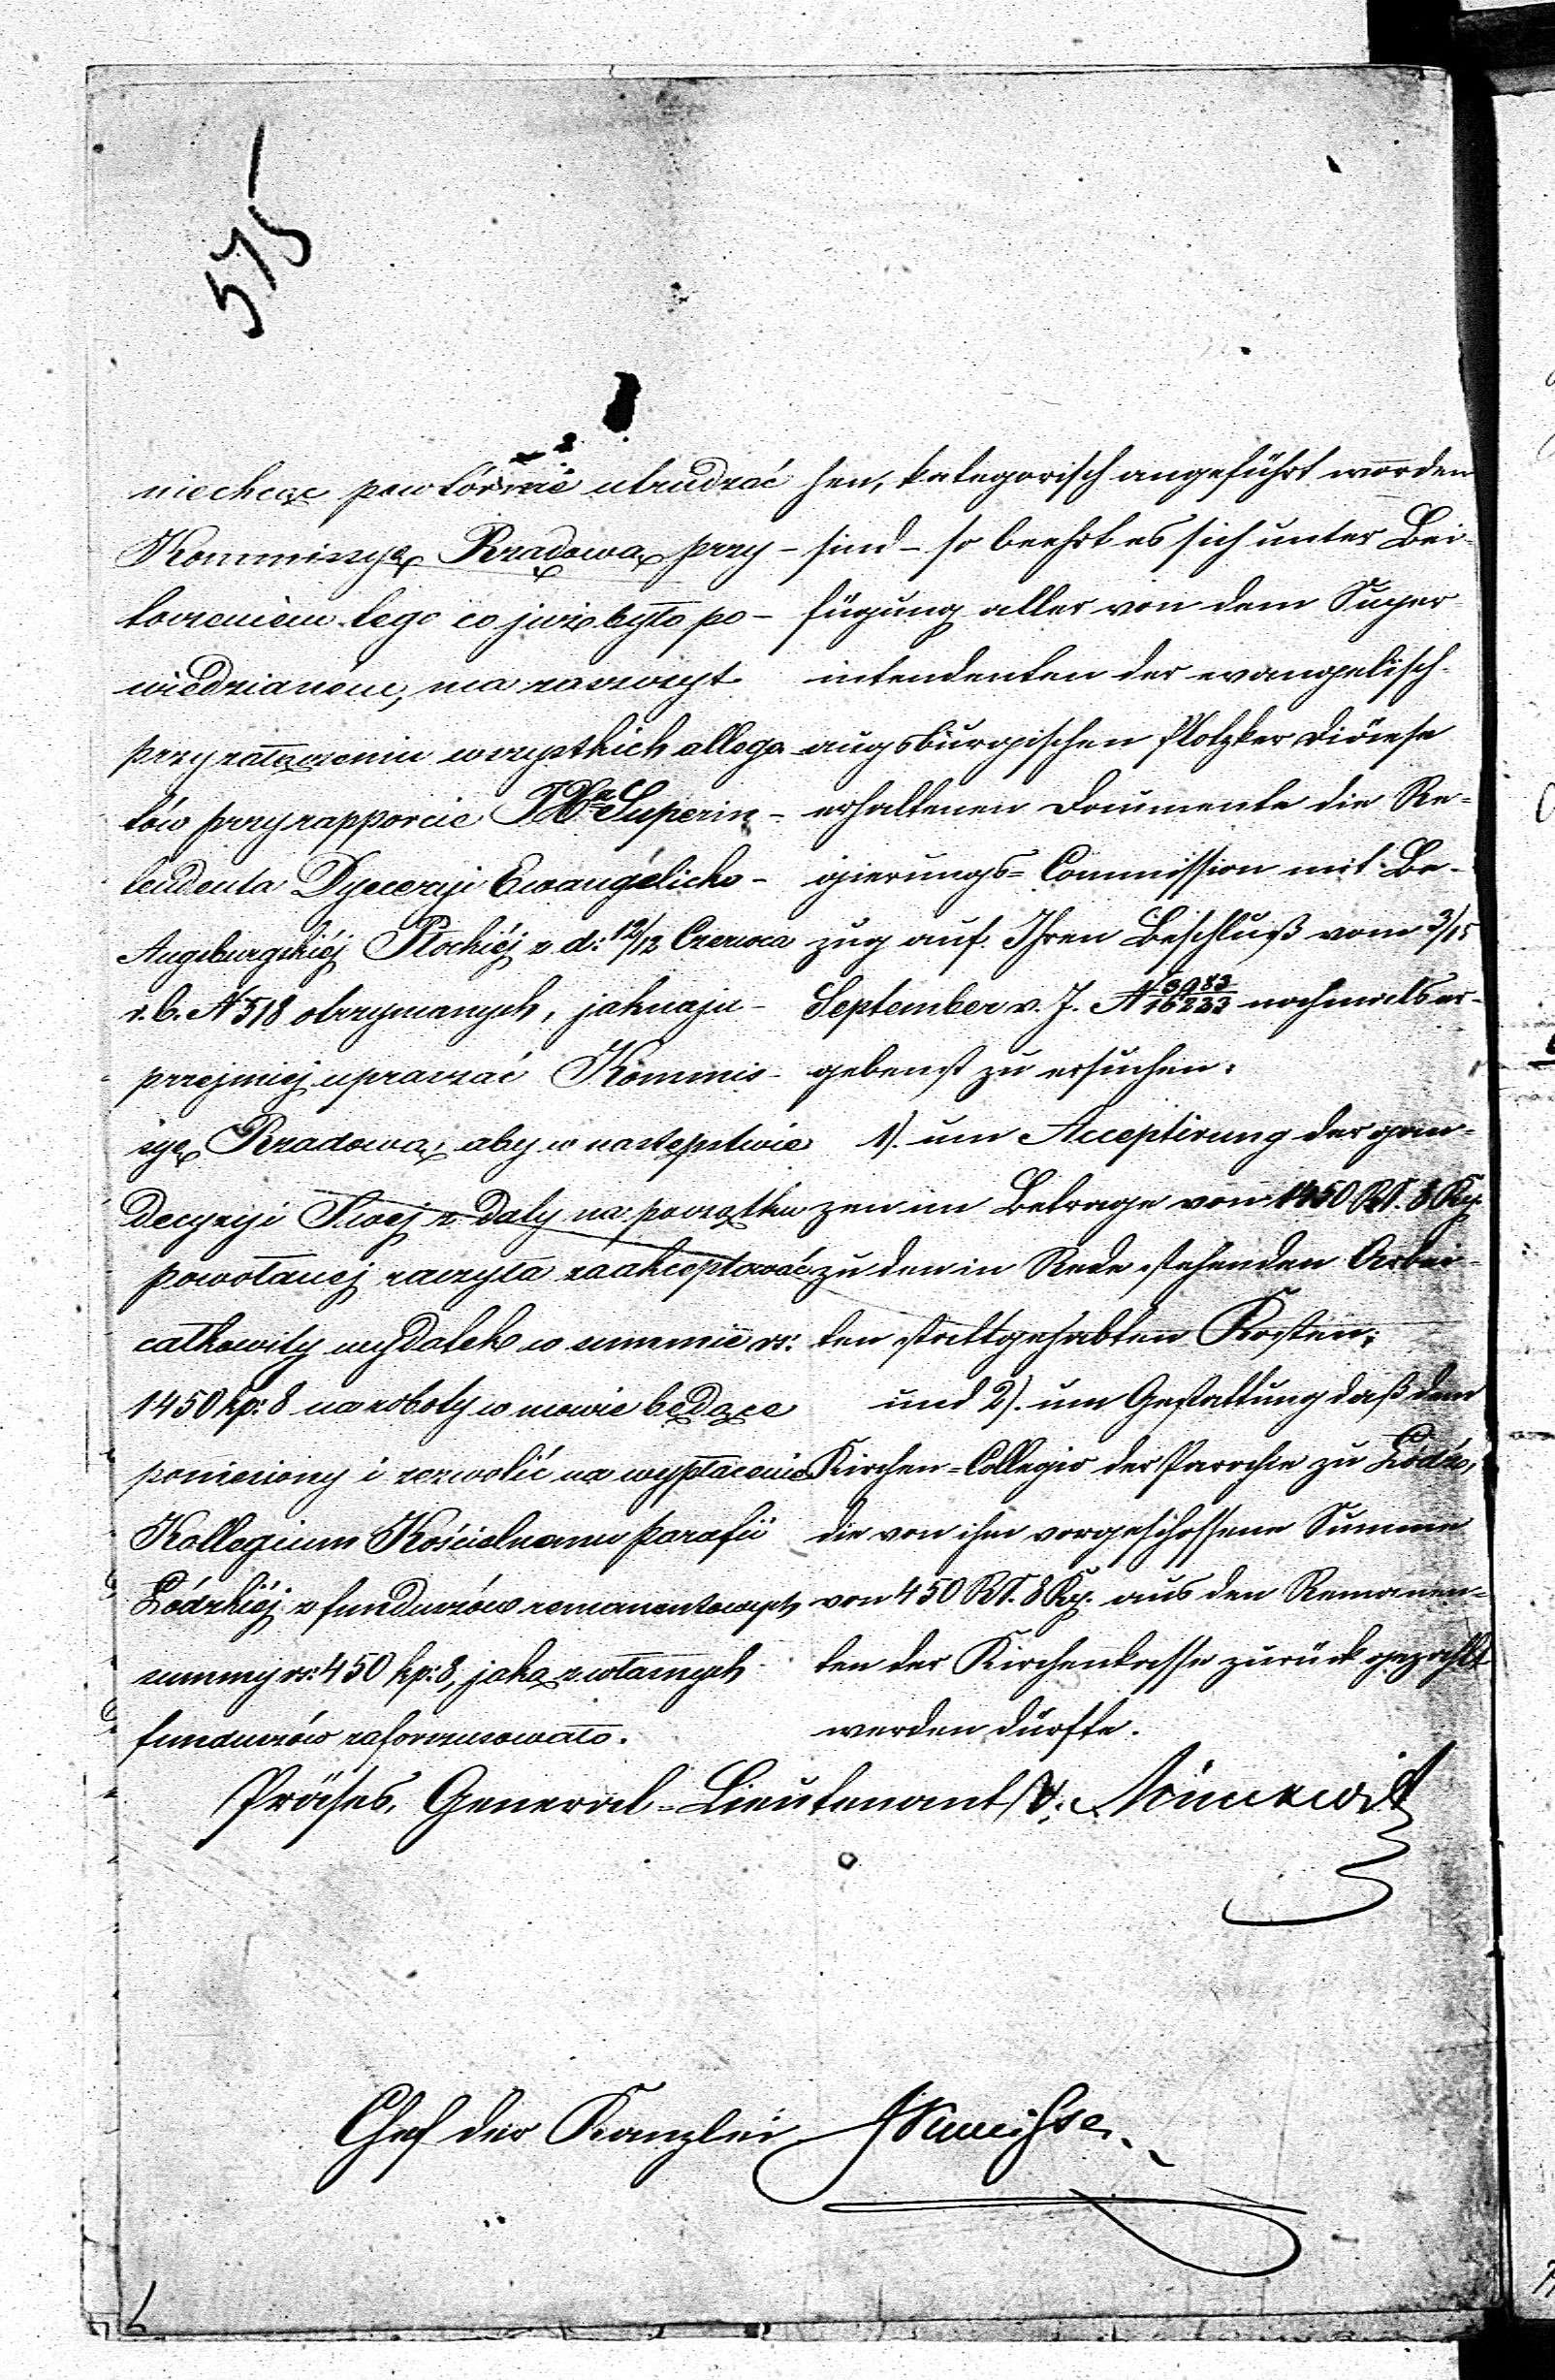 575
niechcąc powtórnie utrudzać
Kommissyą Rządową przy-
toczeniem tego co już było po-
wiedzianém, ma zaszczyt
przy załączeniu wszystkich allega-
tów przy rapporcie JXa Superin-
tendenta Dyecezyi Ewangelicko-
Augsburgskiéj Płockiéj z d: 12/12 Czerwca
r. b. N 518 otrzymanych, jaknaju-
przejmiéj upraszać Kommis-
syę Rządową, aby w następstwie
decyzyi Swéj z daty na początku
powołanéj raczyła zaakceptować
całkowity wydatek w summie rs:
1450 kp: 8 na roboty w mowie będące
poniesiony i zezwolić na wypłacenie
Kollegium Kościelnemu parafii
Łódzkiéj z funduszów remanentowych
summy rs: 450 kp: 8, jaką z własnych
funduszów zaforszusowało.
hen, kategorisch angeführt worden
sind - so beehrt es sich unter Bei-
fügung aller von dem Super-
intendenten der evangelisch-
augsburgischen Plotzker Diöcese
erhaltenen Documente die Re-
gierungs-Commission mit Be-
zug auf Ihren Beschluß vom 3/15
September v. J. N 5983/16233 nochmals er-
gebenst zu ersuchen:
1). um Acceptirung der gan-
zen im Betrage von 1450 Rbl. 8 Kp.
zu den in Rede stehenden Arbei-
ten stattgehabten Kosten;
und 2). um Gestattung daß dem
Kirchen-Collegio der Parochie zu Łódź,
die von ihm vorgeschossene Summe
von 450 Rbl. 8 Kp. aus den Remanen-
ten der Kirchenkasse zurück gezahlt
werden dürfte.
Präses, General-Lieutenant v. Minckwitz
Chef der Kanzlei